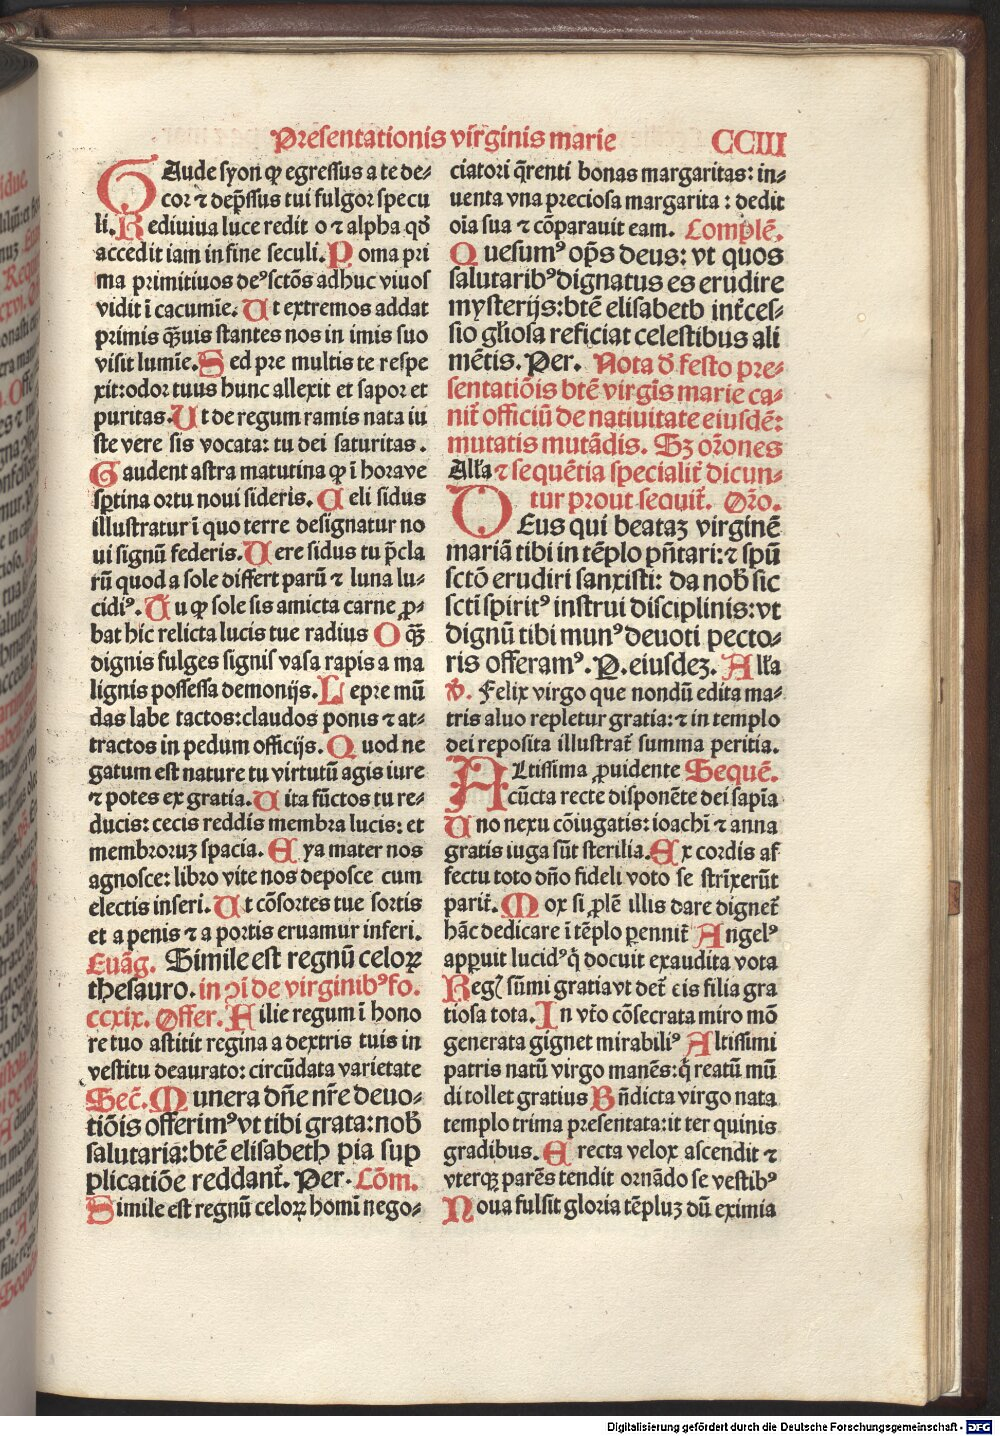 Presentationis virginis marie CCIII
GAude syon qꝫ egressus a te de⸗
cor ⁊ dep̃ssus tui fulgor specu
li. Rediuiua luce redit o ⁊ alpha qđ
accedit iam in fine seculi. Poma pri
ma primitiuos deꝰsctõs adhuc viuos
vidit ĩ cacumĩe. Ut extremos addat
primis q̃uis stantes nos in imis suo
visit lumĩe. Sed pre multis te respe
xit:odor tuus hunc allexit et sapor et
puritas. Ut de regum ramis nata iu
ste vere sis vocata: tu dei saturitas.
Gaudent astra matutina qꝫ ĩ horave
sꝑtina ortu noui sideris. Celi sidus
illustratur ĩ quo terre designatur no
ui signũ federis. Vere sidus tu p̃cla
rũ quod a sole differt parũ ⁊ luna lu⸗
cidiꝰ. Tu qꝫ sole sis amicta carne ꝓ⸗
bat hic relicta lucis tue radius O q̃ꝫ
dignis fulges signis vasa rapis a ma
lignis possessa demonijs. Lepre mũ
das labe tactos:claudos ponis ⁊ at⸗
tractos in pedum officijs. Quod ne
gatum est nature tu virtutũ agis iure
⁊ potes ex gratia. Vita fũctos tu re⸗
ducis: cecis reddis membra lucis: et
membroruꝫ spacia. Eya mater nos
agnosce: libro vite nos deposce cum
electis inseri. Ut cõsortes tue sortis
et a penis ⁊ a portis eruamur inferi.
Euãg. Simile est regnũ celoꝝ
thesauro. in ꝯĩ de virginibꝰ fo.
ccxix. Offer. Filie regum ĩ hono
re tuo astitit regina a dextris tuis in
vestitu deaurato: circũdata varietate
Sec̃. Munera dñe nr̃e deuo⸗
tiõis offerimꝰvt tibi grata:nob̃
salutaria:btẽ elisabeth pia sup
plicatiõe reddant̃. Per. Cõm.
Simile est regnũ celoꝝ homĩ nego⸗
ciatori q̃renti bonas margaritas: in⸗
uenta vna preciosa margarita : dedit
oĩa sua ⁊ cõparauit eam. Complẽ.
Quesumꝰ op̃s deus: vt quos
salutaribꝰdignatus es erudire
mysterijs:btẽ elisabeth int̃ces⸗
sio gl̃iosa reficiat celestibus ali
mẽtis. Per. Nota đ festo pre⸗
sentatiõis btẽ virgĩs marie ca⸗
nit̃ officiũ de natiuitate eiusdẽ:
mutatis mutãdis. Sꝫ or̃ones
All̃a ⁊ sequẽtia specialit̃ dicun⸗
tur prout sequit̃. Or̃o.
DEus qui beataꝫ virginẽ
mariã tibi in tẽplo p̃ntari:⁊ spũ
sctõ erudiri sanxisti: da nob̃ sic
sctĩ spiritꝰ instrui disciplinis:vt
dignũ tibi munꝰ deuoti pecto⸗
ris offeramꝰ. P. eiusdeꝫ. All̃a
℣. Felix virgo que nondũ edita ma⸗
tris aluo repletur gratia:⁊ in templo
dei reposita illustrat̃ summa peritia.
ALtissima ꝓuidente Sequẽ.
cũcta recte disponẽte dei sapĩa
Uno nexu cõiugatis: ioachĩ ⁊ anna
gratis iuga sũt sterilia. Ex cordis af
fectu toto dño fideli voto se strĩxerũt
parit̃. Mox si ꝓlẽ illis dare dignet̃
hãc dedicare ĩ tẽplo ꝑennit̃ Angelꝰ
apꝑuit lucidꝰq̃ docuit exaudita vota
Regꝭ sũmi gratiavt det̃ eis filia gra
tiosa tota. In vt̃o cõsecrata miro mõ
generata gignet mirabiliꝰ Altissimi
patris natũ virgo manẽs:q̃ reatũ mũ
di tollet gratius Bñdicta virgo nata
templo trima presentata:it ter quinis
gradibus. Erecta velox ascendit ⁊
vterqꝫ parẽs tendit ornãdo se vestibꝰ
Noua fulsit gloria tẽpluꝫ dũ eximia
Digitalisierung gefördert durch die Deutsche Forschungsgemeinschaft - DFG